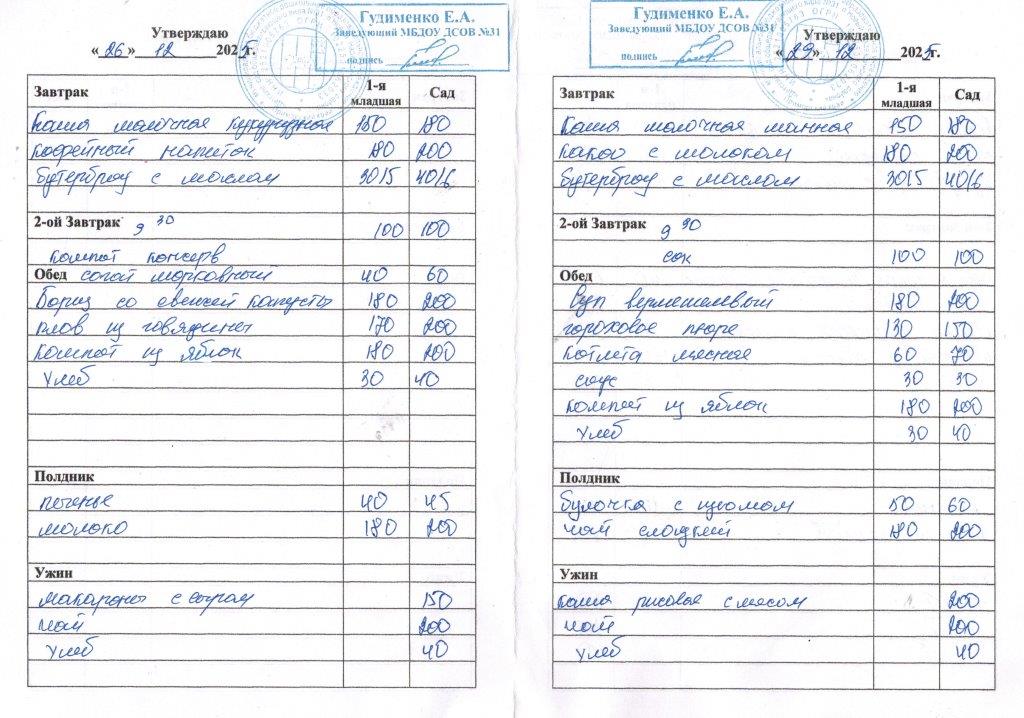 Гудименко Е.А.
Заведующий МБДОУ ДСОВ №31
подпись
Утверждаю
«26» 12 2025г.
Завтрак 1-я младшая Сад
Каша молочная кукурузная 150 180
кофейный напиток 180 200
бутерброд с маслом 30/5 40/6
2-ой Завтрак 9 30 100 100
компот консерв
Обед салат морковный 40 60
Борщ со свежей капусты 180 200
плов из говядины 170 200
компот из яблок 180 200
хлеб 30 40
Полдник
печенье 40 45
молоко 180 200
Ужин
макароны с сыром 150
чай 200
хлеб 40
Гудименко Е.А.
Заведующий МБДОУ ДСОВ №31
подпись
Утверждаю
«29» 12 2025г.
Завтрак 1-я младшая Сад
Каша молочная манная 150 180
какао с молоком 180 200
бутерброд с маслом 30/5 40/6
2-ой Завтрак 9 30
сок 100 100
Обед
Суп вермешелевый 180 200
гороховое пюре 130 150
котлета мясная 60 70
соус 30 30
компот из яблок 180 200
хлеб 30 40
Полдник
булочка с изюмом 50 60
чай сладкий 180 200
Ужин
каша рисовая с мясом 200
чай 200
хлеб 40